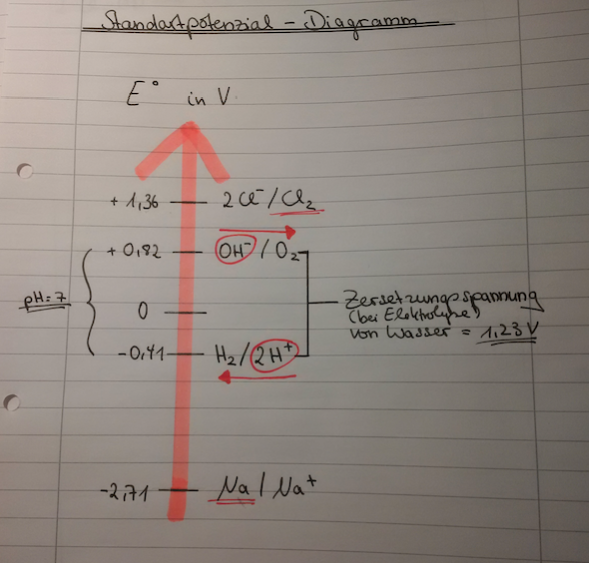 Standartpotenzial - Diagramm
E° in V
+ 1,36 2Cl⁻/Cl₂
+ 0,82 OH⁻ / O₂
pH=7
0
Zersetzungsspannung
(bei Elektrolyse)
von Wasser = 1,23 V
-0,41 H₂/2H⁺
-2,71 Na / Na⁺